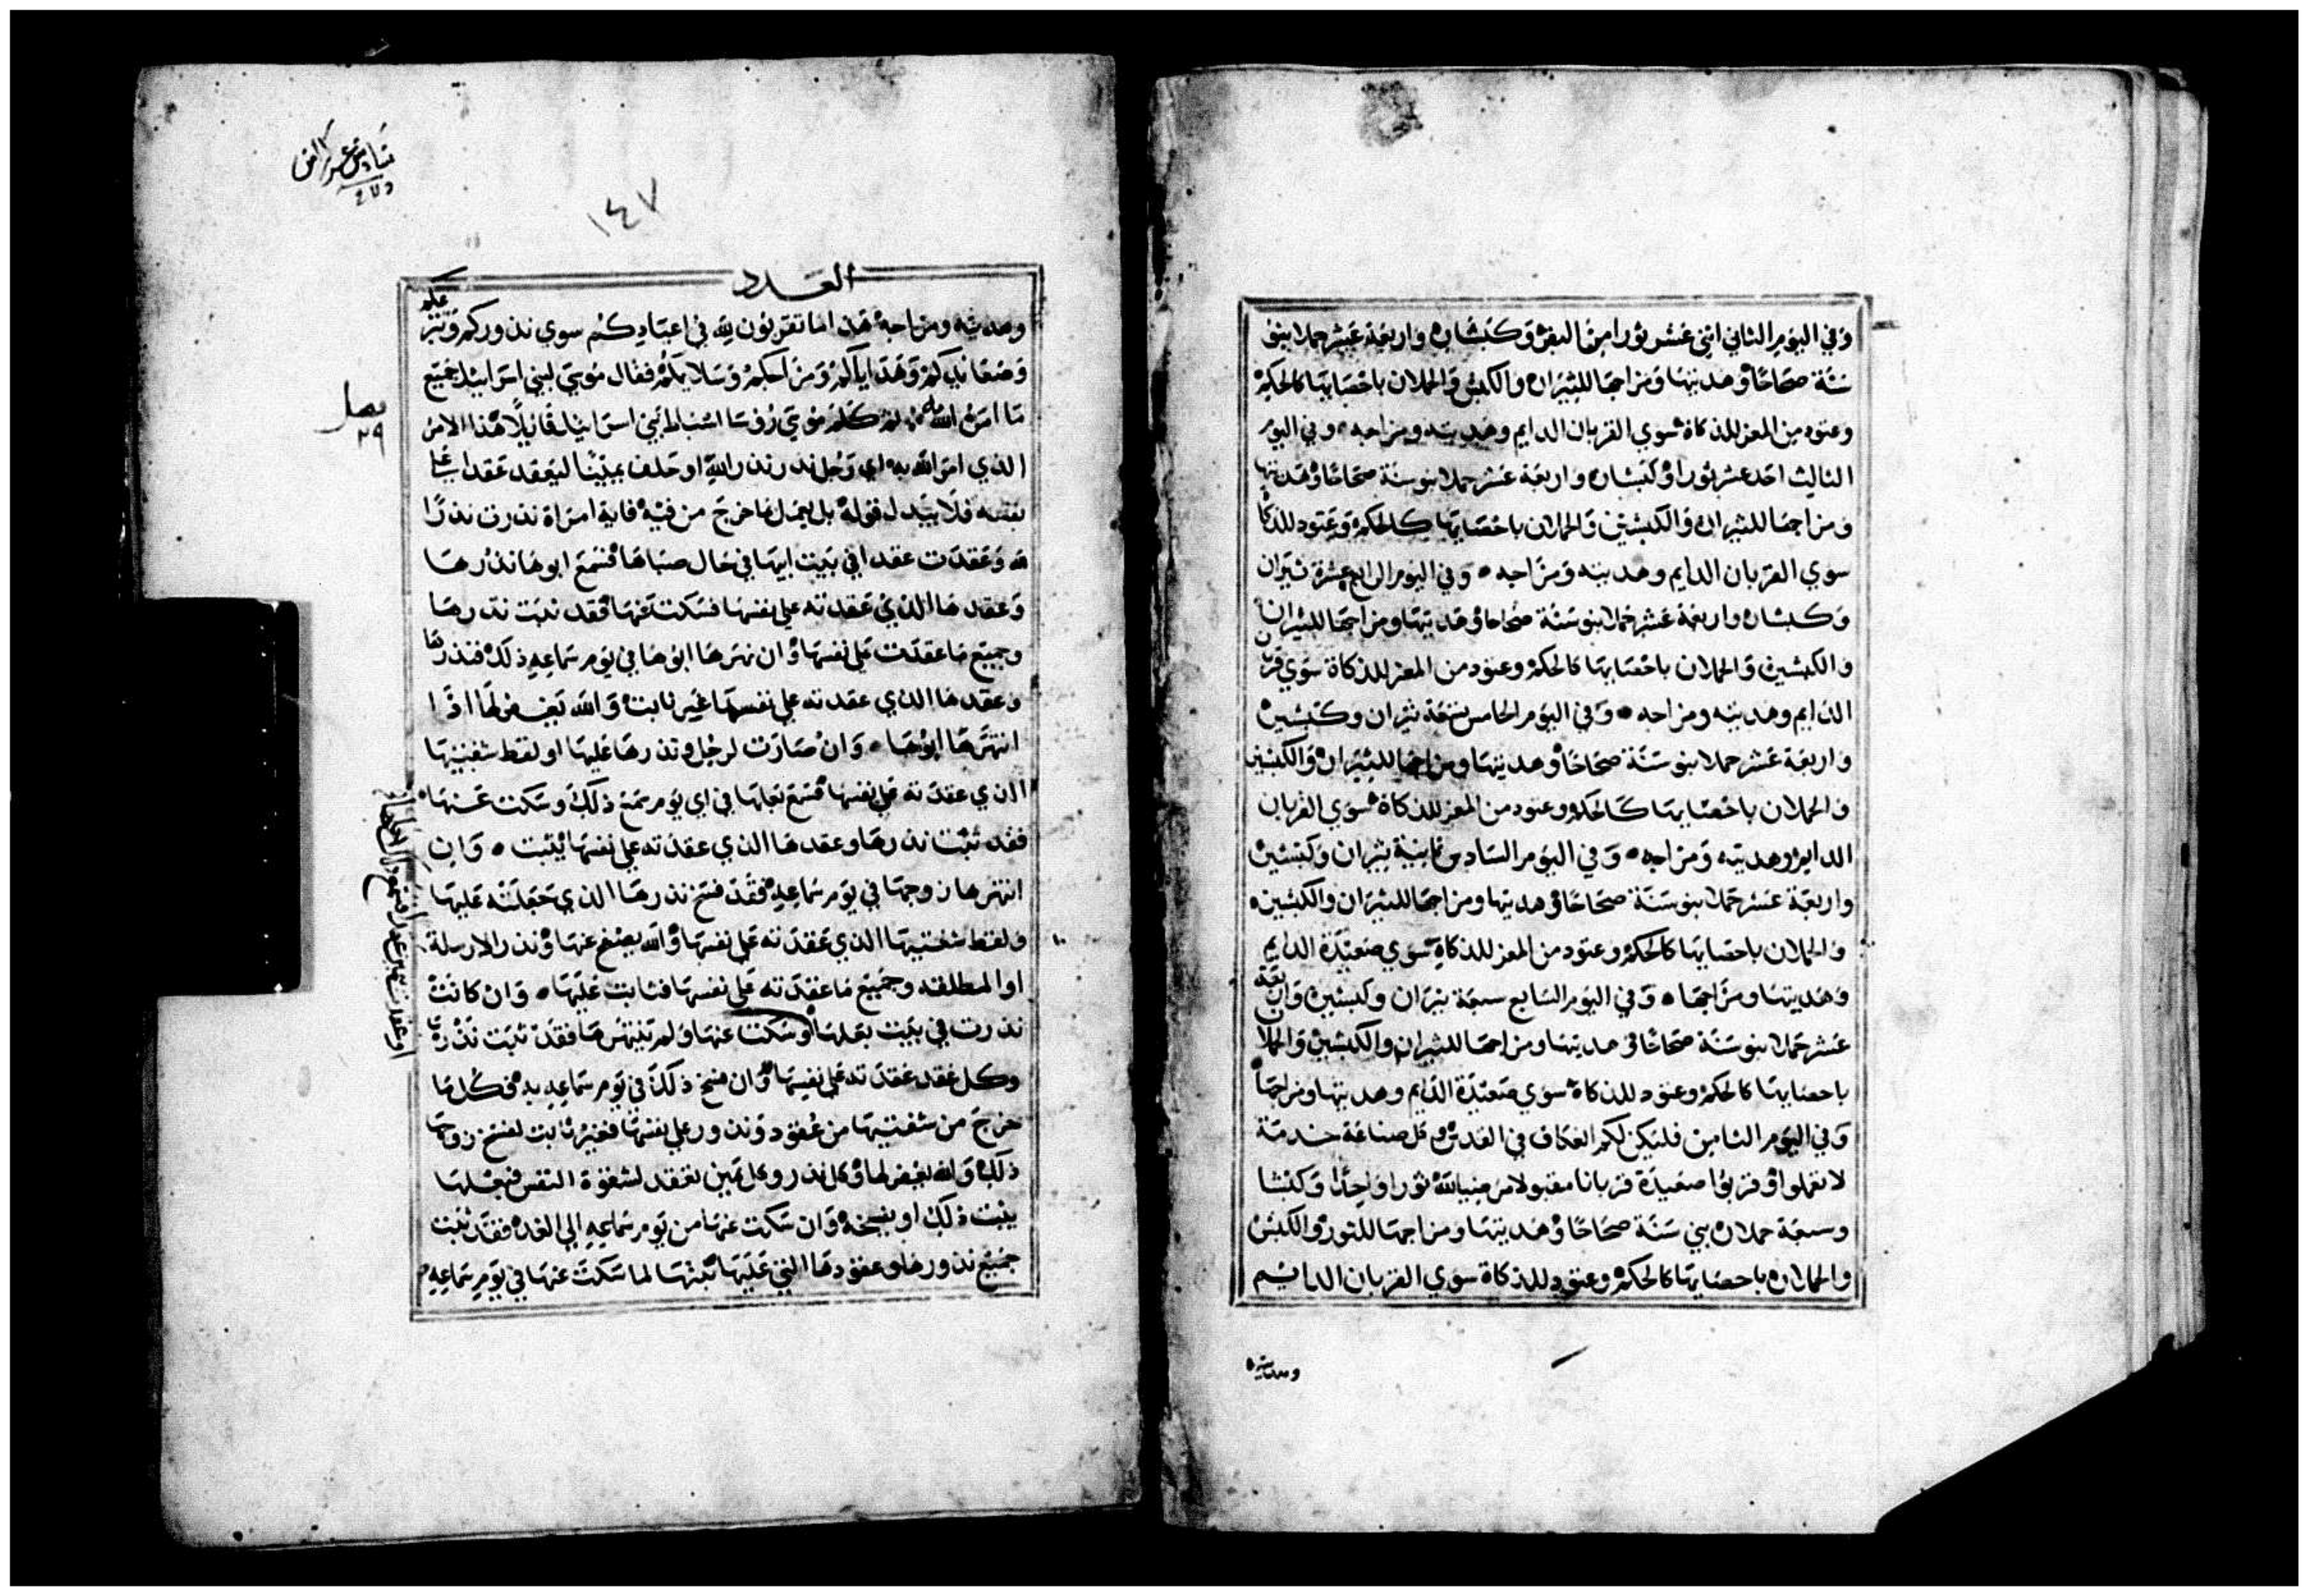 وفي اليوم الثاني اثني عشر ثورا من البقر وكبشان واربعة عشر حملا بنو
سنة صحاحا وهديتها ومزاجها للثيران والكبش والحملان باحصايها كالحكم
وعتود من المعز للذكاة سوي القربان الدايم وهديته ومزاجه وفي اليوم
الثالث احد عشر ثورا وكبشان واربعة عشر حملا بنو سنة صحاحا وهديتها
ومزاجها للثيران والكبشين والحملان باحصايها كالحكم وعتود للذكاة
سوي القربان الدايم وهديته ومزاجه وفي اليوم الرابع عشرة ثيران
وكبشان واربعة عشر حملا بنو سنة صحاحا وهديتها ومزاجها للثيران
والكبشين والحملان باحصايها كالحكم وعتود من المعز للذكاة سوي قربان
الدايم وهديته ومزاجه وفي اليوم الخامس تسعة ثيران وكبشين
واربعة عشر حملا بنو سنة صحاحا وهديتها ومزاجها للثيران والكبشين
والحملان باحصايها كالحكم وعتود من المعز للذكاة سوي القربان
الدايم وهديته ومزاجه وفي اليوم السادس ثمانية ثيران وكبشين
واربعة عشر حملا بنو سنة صحاحا وهديتها ومزاجها للثيران والكبشين
والحملان باحصايها كالحكم وعتود من المعز للذكاة سوي صعيدة الدايم
وهديتها ومزاجها وفي اليوم السابع سبعة ثيران وكبشين واربعة
عشر حملا بنو سنة صحاحا وهديتها ومزاجها للثيران والكبشين والحملا
باحصايها كالحكم وعتود للذكاة سوي صعيدة الدايم وهديتها ومزاجها
وفي اليوم الثامن فليكن لكم العكاف في القدس وكل صناعة خدمة
لا تعملوا وقربوا صعيدة قربانا مقبولا مرضيا لله ثورا واحدا وكبشا
وسبعة حملان بني سنة صحاحا وهديتها ومزاجها للثور والكبش
والحملان باحصايها كالحكم وعتود للذكاة سوي القربان الدايم
وهديته
سادس عشر
١٤٧
العدد
وهديته ومزاجه هذا ما تقربون لله في اعيادكم سوي نذوركم وتبرعكم
وصعايدكم وهداياكم ومزاجكم وسلايمكم فقال موسي لبني اسراييل جميع
ما امره الله به ثم كلم موسي روسا اسباط بني اسراييل قايلا هذا الامر
الذي امر الله به اي رجل نذر نذرا لله او حلف يمينا ليعقد عقدا علي
نفسه فلا يبدل قوله بل يعمل ما خرج من فيه فاية امراة نذرت نذرا
لله وعقدت عقدا في بيت ابيها في حال صباها فسمع ابوها نذرها
وعقدها الذي عقدته علي نفسها فسكت عنها فقد ثبت نذرها
وجميع ما عقدت علي نفسها وان نهرها ابوها في يوم سماعه ذلك فنذرها
وعقدها الذي عقدته علي نفسها غير ثابت والله يغفر لها اذا
انتهرها ابوها وان صارت لرجل ونذرها عليها او لفظ شفتيها
الذي عقدته علي نفسها فسمع بعلها في اي يوم سمع ذلك وسكت عنها
فقد ثبت نذرها وعقدها الذي عقدته علي نفسها يثبت وان
انتهرها زوجها في يوم سماعه فقد فسخ نذرها الذي جعلته عليها
ولفظ شفتيها الذي عقدته علي نفسها والله يصفح عنها ونذر الارملة
او المطلقه وجميع ما عقدته علي نفسها فثابت عليها وان كانت
نذرت في بيت بعلها وسكت عنها ولم ينتهرها فقد ثبت نذرها
وكل عقد عقدته علي نفسها وان فسخ ذلك في يوم سماعه به فكل ما
خرج من شفتيها من عقود ونذور علي نفسها فغير ثابت لفسخ زوجها
ذلك والله يغفر لها وكل نذر وكل يمين تعقد لشقوة النفس فبعلها
يثبت ذلك او يفسخه وان سكت عنها من يوم سماعه الي الغد فقد ثبت
جميع نذورها وعقودها التي عليها ثبتها لما سكت عنها في يوم سماعه
فصل
٢٩